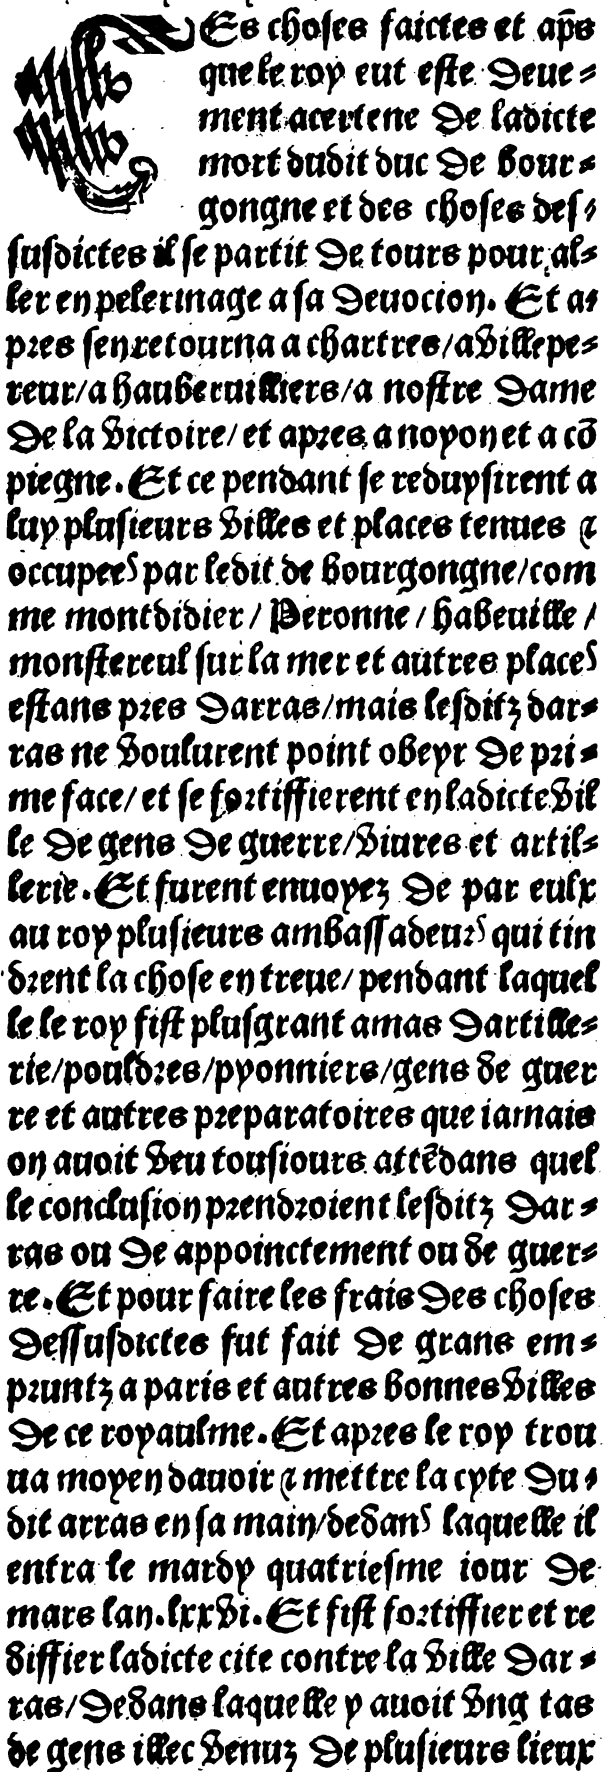 Es choses faictes et ap̄s
que le roy eut este deue-
ment acertene de ladicte
mort dudit duc de bour-
gongne et des choses des-
susdictes il se partit de tours pour al-
ler en pelerinage a sa deuocion. Et a-
pres sen retourna a chartres/a villepe-
reur/a hauberuilliers/a nostre dame
de la victoire/ et apres a noyon et a cō
piegne. Et ce pendant se reduysirent a
luy plusieurs villes et places tenues ⁊
occupees par ledit de bourgongne/com
me montdidier / Peronne / habeuille /
monstereul sur la mer et autres places
estans pres darras/mais lesditz dar-
ras ne voulurent point obeyr de pri-
me face/ et se fortiffierent en ladicte vil
le de gens de guerre/viures et artil-
lerie. Et furent enuoyez de par eulx
au roy plusieurs ambassadeurs qui tin
drent la chose en treue/ pendant laquel
le le roy fist plusgrant amas dartille-
rie/pouldres/pyonniers/gens de guer
re et autres preparatoires que iamais
on auoit veu tousiours attēdans quel
le conclusion prendroient lesditz dar-
ras ou de appoinctement ou de guer-
re. Et pour faire les frais des choses
dessusdictes fut fait de grans em-
pruntz a paris et autres bonnes villes
de ce royaulme. Et apres le roy trou
ua moyen dauoir ⁊ mettre la cyte du-
dit arras en sa main/dedans laquelle il
entra le mardy quatriesme iour de
mars lan.lxxvi. Et fist fortiffier et re
diffier ladicte cite contre la ville dar-
ras/dedans laquelle y auoit vng tas
de gens illec venuz de plusieurs lieux